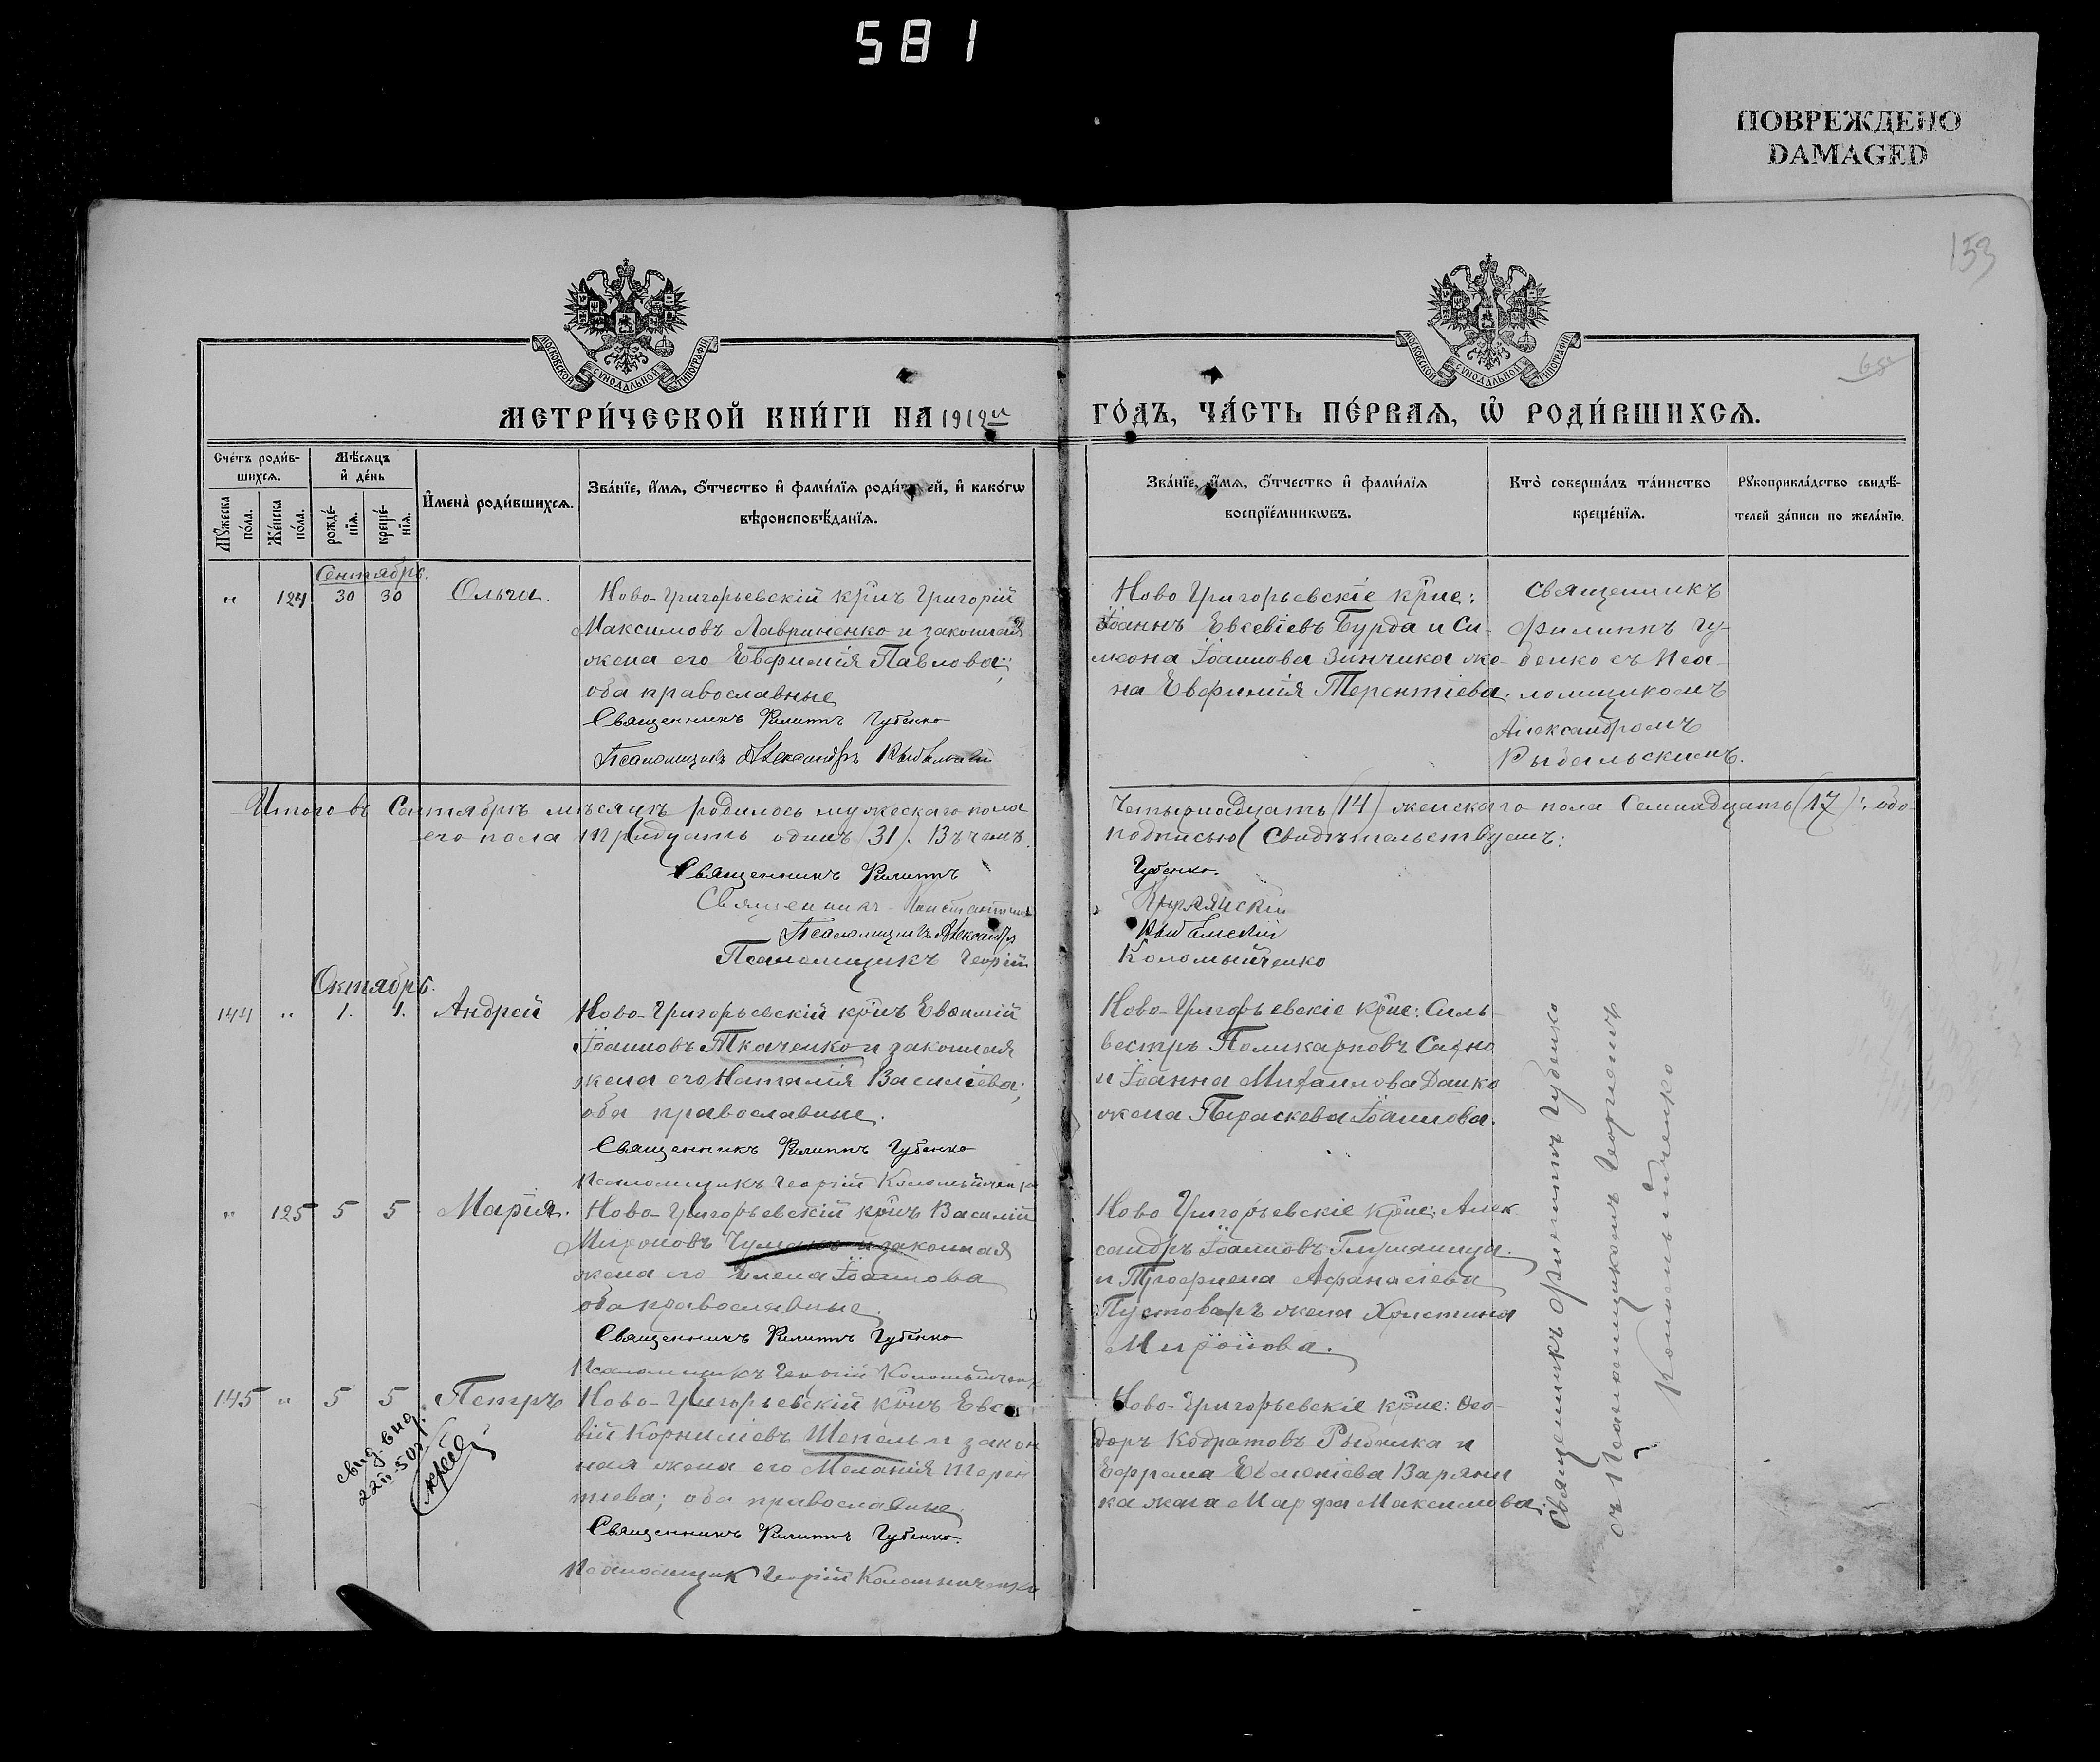 581
ПОВРЕЖДЕНО
DAMAGED
153
68
МОСКОВСКОЙ СѴНОДАЛЬНОЙ ТИПОГРАФІИ
МОСКОВСКОЙ СѴНОДАЛЬНОЙ ТИПОГРАФІИ
МЕТРИ́ЧЕСКОЙ КНИ́ГИ НА 1912й ГО́ДЪ, ЧА́СТЬ ПЕ́РВАѦ, Ѽ РОДИ́ВШИХСѦ.
Сче́тъ роди́в-
шихсѧ.
Мѣ́сѧцъ
и҆ де́нь
Мꙋ́жеска по́ла.
Же́нска по́ла.
рожде́-
нїѧ.
креще́-
нїѧ.
И҆мена̀ роди́вшихсѧ.
Зва́нїе, и҆́мѧ, ѻ҆́тчество и҆ фами́лїѧ роди́телей, и҆ како́гѡ
вѣроисповѣ́данїѧ.
Зва́нїе, и҆́мѧ, ѻ҆́тчество и҆ фами́лїѧ
воспрїе́мникѡвъ.
Кто̀ соверша́лъ та́инство
креще́нїѧ.
Рꙋкоприкла́дство свидѣ́-
телей за́писи по жела́нїю.
Сентябрь.
" 124 30 30 Ольга.
Ново-Григорьевскій крнъ Григорій
Максимовъ Лавриненко и законная
жена его Евфимія Павлова;
оба православные
Священникъ Филиппъ Губенко
Псаломщикъ Александръ Рыбальскій
Ново Григорьевскіе крне:
Іоаннъ Евсевіевъ Бурда и Си-
меона Іоаннова Зинчика же-
на Евфимія Терентіева.
Священникъ
Филиппъ Гу-
бенко съ Пса-
ломщикомъ
Александромъ
Рыбальскимъ.
Итого въ Сентябрѣ мѣсяцѣ родилось мужескаго пола Четырнадцать (14) женскаго пола Семнадцать (17): обо-
его пола тридцать одинъ (31). Въ чемъ подписью Свидѣтельствуемъ:
Священникъ Филиппъ Губенко.
Священникъ Константинъ
Псаломщикъ Александръ Рыбальскій
Псаломщикъ Георгій Коломыйченко
Октябрь.
144 " 1. 1. Андрей
Ново-Григорьевскій крнъ Евѳимій
Іоанновъ Ткаченко и законная
жена его Наталія Василіева;
оба православные.
Священникъ Филиппъ Губенко
Псаломщикъ Георгій Коломыйченко
Ново-Григорьевскіе крне: Силь-
вестръ Поликарповъ Сахно
и Іоанна Михаилова Дашко
жена Параскева Іоаннова.
" 125 5 5 Марія.
Ново-Григорьевскій крнъ Василій
Мироновъ Чумакъ и законная
жена его Елена Іоаннова
оба православные.
Священникъ Филиппъ Губенко
Псаломщикъ Георгій Коломыйченко
Ново Григорьевскіе крне: Алек-
сандръ Іоанновъ
и Трофима Афанасіева
Пустоваръ жена Христина
Миронова.
145 " 5 5 Петръ
Ново-Григорьевскій крнъ Евсе-
вій Корниліевъ Шепель и закон
ная жена его Меланія Терен
тіева; оба православные.
Священникъ Филиппъ Губенко.
Псаломщик Георгій Коломыйченко
Ново-Григорьевскіе крне: Ѳео-
доръ Кодратовъ Рыбалка и
Ефрема Евменіева Варяни
ка жена Марфа Максимова.
Священникъ Филиппъ Губенко
съ Псаломщикомъ Георгіемъ
Коломыйченко